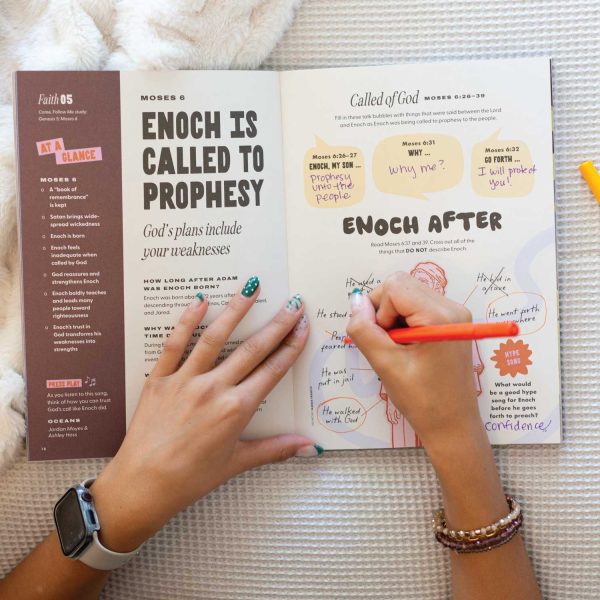 Faith 05
Come, Follow Me study:
Genesis 5; Moses 6
AT A
GLANCE
MOSES 6
A "book of
remembrance"
is kept
Satan brings wide-
spread wickedness
Enoch is born
Enoch feels
inadequate when
called by God
God reassures and
strengthens Enoch
Enoch boldly teaches
and leads many
people toward
righteousness
Enoch's trust in
God transforms his
weaknesses into
strengths
PRESS PLAY
As you listen to this song,
think of how you can trust
God's call like Enoch did.
OCEANS
Jordan Moyes &
Ashley Hess
MOSES 6
ENOCH IS
CALLED TO
PROPHESY
God's plans include
your weaknesses
HOW LONG AFTER ADAM
WAS ENOCH BORN?
Enoch was born
descending through
and Jared.
Called of God MOSES 6:26–39
Fill in these talk bubbles with things that were said between the Lord
and Enoch as Enoch was being called to prophesy to the people.
Moses 6:26–27
ENOCH, MY SON ...
prophesy
unto the
people
Moses 6:31
WHY ...
why me?
Moses 6:32
GO FORTH ...
I will protect
you!
ENOCH AFTER
Read Moses 6:37 and 39. Cross out all of the
things that DO NOT describe Enoch.
He used a
He stood
feared him
He was
put in jail
He walked
with God
He hid in
a cave
He went forth
HYPE
SONG
What would
be a good hype
song for Enoch
before he goes
forth to preach?
confidence!